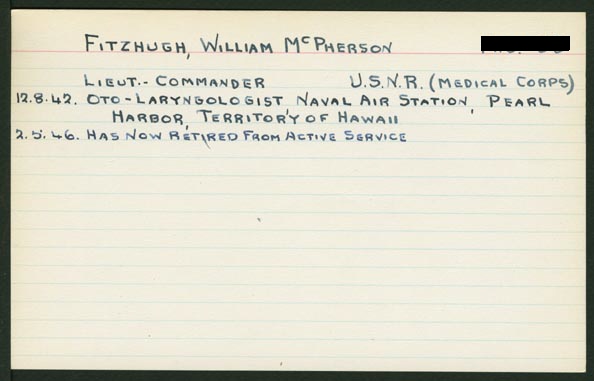 FITZHUGH, WILLIAM McPHERSON
LIEUT.- COMMANDER U.S.N.R. (MEDICAL CORPS)
12.8.42. OTO-LARYNGOLOGIST, NAVAL AIR STATION, PEARL
HARBOR, TERRITORY OF HAWAII
2.5.46. HAS NOW RETIRED FROM ACTIVE SERVICE